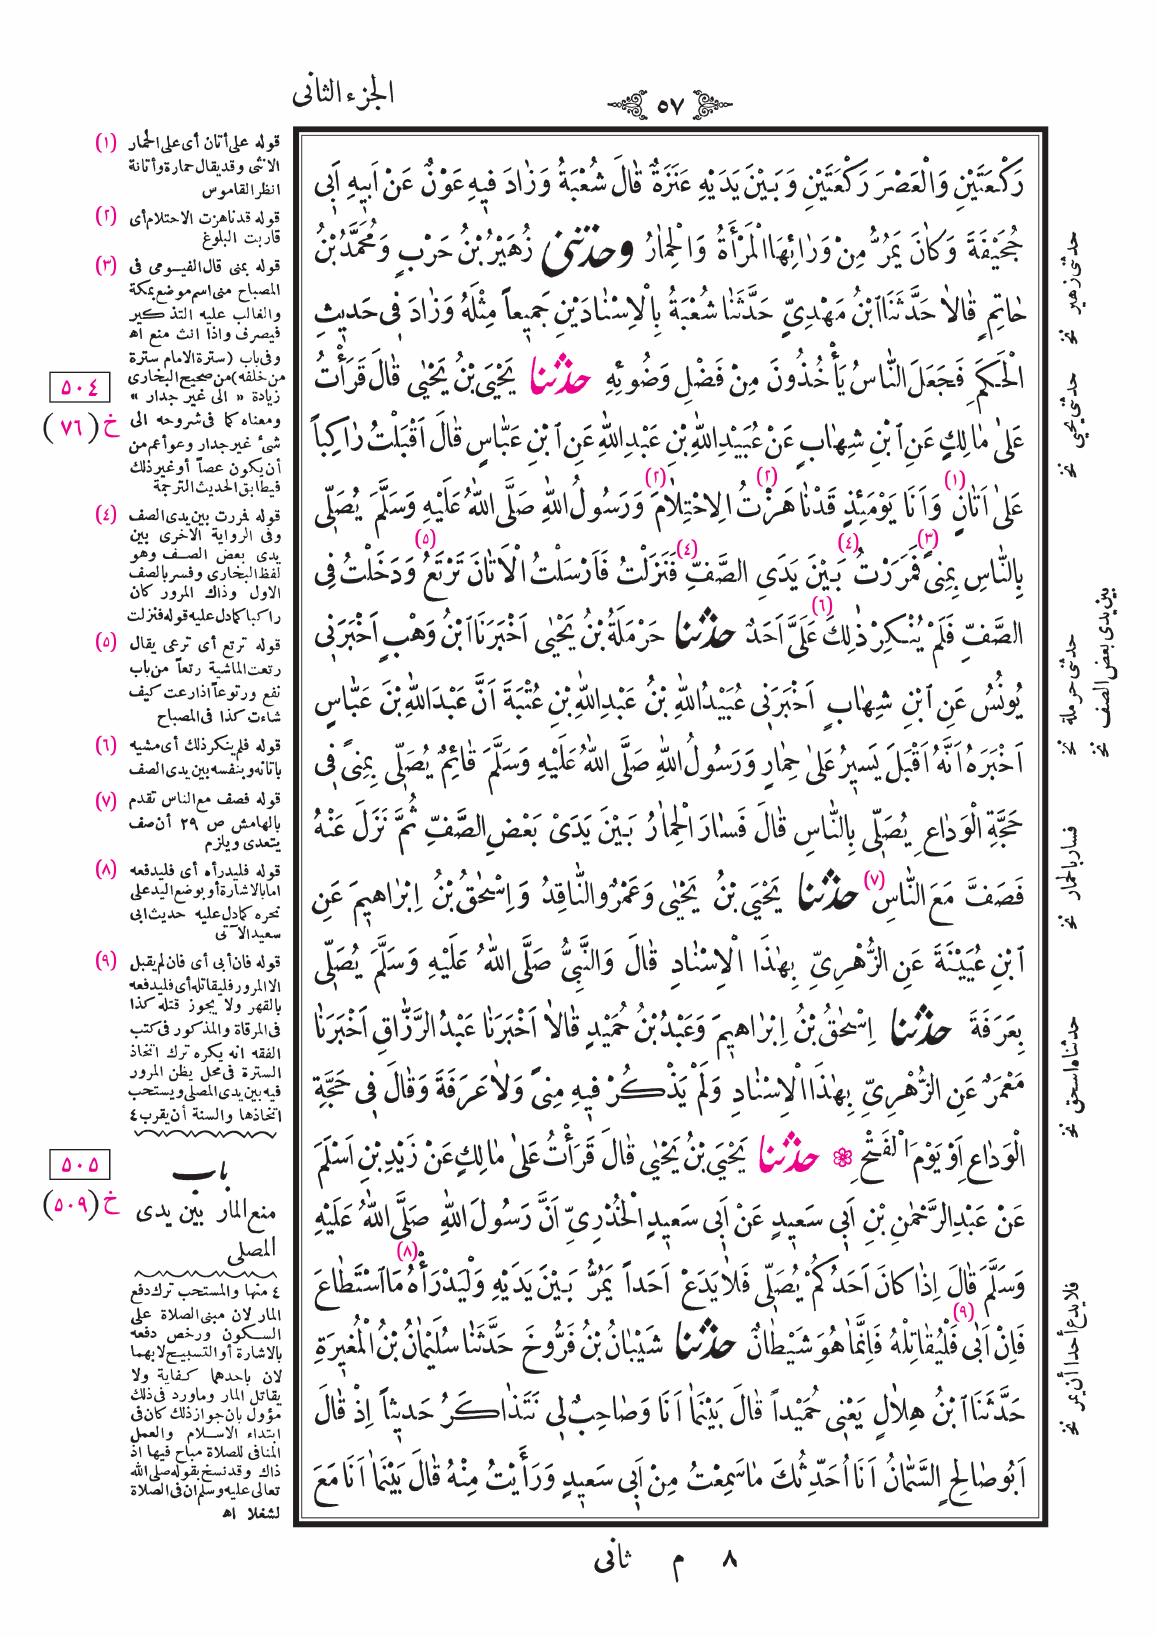 الجزء الثانى
٥٧
رَكْعَتَيْنِ وَالْعَصْرَ رَكْعَتَيْنِ وَبَيْنَ يَدَيْهِ عَنَزَةٌ قَالَ شُعْبَةُ وَزَادَ فيهِ عَوْنٌ عَنْ اَبيهِ اَبى
جُحَيْفَةَ وَكَانَ يَمُرُّ مِنْ وَرَائِهَا الْمَرْأَةُ وَالْحِمَارُ وحدثنى زُهَيْرُ بْنُ حَرْبٍ وَمُحَمَّدُ بْنُ
حَاتِمٍ قَالَا حَدَّثَنَا ابْنُ مَهْدِيٍّ حَدَّثَنَا شُعْبَةُ بِالْاِسْنَادَيْنِ جَميعاً مِثْلَهُ وَزَادَ فى حَديثِ
الْحَكَمِ فَجَعَلَ النَّاسُ يَأْخُذُونَ مِنْ فَضْلِ وَضُوئِهِ حدثنا يَحْيَى بْنُ يَحْيٰى قَالَ قَرَأْتُ
عَلىٰ مَالِكٍ عَنِ ابْنِ شِهَابٍ عَنْ عُبَيْدِ اللهِ بْنِ عَبْدِ اللهِ عَنِ ابْنِ عَبَّاسٍ قَالَ اَقْبَلْتُ رَاكِباً
عَلىٰ اَتَانٍ (١) وَاَنَا يَوْمَئِذٍ قَدْ نَاهَزْتُ (٢) الِاحْتِلَامَ (٢) وَرَسُولُ اللهِ صَلَّى اللهُ عَلَيْهِ وَسَلَّمَ يُصَلّى
بِالنَّاسِ بِمِنىً (٣) فَمَرَرْتُ (٤) بَيْنَ يَدَىِ الصَّفِّ (٤) فَنَزَلْتُ فَاَرْسَلْتُ الْاَتَانَ تَرْتَعُ (٥) وَدَخَلْتُ فِى
الصَّفِّ فَلَمْ يُنْكِرْ ذٰلِكَ (٦) عَلَىَّ اَحَدٌ حدثنا حَرْمَلَةُ بْنُ يَحْيٰى اَخْبَرَنَا ابْنُ وَهْبٍ اَخْبَرَنى
يُونُسُ عَنِ ابْنِ شِهَابٍ اَخْبَرَنى عُبَيْدُ اللهِ بْنُ عَبْدِ اللهِ بْنِ عُتْبَةَ اَنَّ عَبْدَ اللهِ بْنَ عَبَّاسٍ
اَخْبَرَهُ اَنَّهُ اَقْبَلَ يَسيرُ عَلىٰ حِمَارٍ وَرَسُولُ اللهِ صَلَّى اللهُ عَلَيْهِ وَسَلَّمَ قَائِمٌ يُصَلّى بِمِنىً فى
حَجَّةِ الْوَدَاعِ يُصَلّى بِالنَّاسِ قَالَ فَسَارَ الْحِمَارُ بَيْنَ يَدَىْ بَعْضِ الصَّفِّ ثُمَّ نَزَلَ عَنْهُ
فَصَفَّ مَعَ النَّاسِ (٧) حدثنا يَحْيَى بْنُ يَحْيٰى وَعَمْرٌو النَّاقِدُ وَاِسْحٰقُ بْنُ اِبْرَاهيمَ عَنِ
ابْنِ عُيَيْنَةَ عَنِ الزُّهْرِىِّ بِهٰذَا الْاِسْنَادِ قَالَ وَالنَّبِىُّ صَلَّى اللهُ عَلَيْهِ وَسَلَّمَ يُصَلّى
بِعَرَفَةَ حدثنا اِسْحٰقُ بْنُ اِبْرَاهيمَ وَعَبْدُ بْنُ حُمَيْدٍ قَالَا اَخْبَرَنَا عَبْدُ الرَّزَّاقِ اَخْبَرَنَا
مَعْمَرٌ عَنِ الزُّهْرِىِّ بِهٰذَا الْاِسْنَادِ وَلَمْ يَذْكُرْ فيهِ مِنىً وَلَا عَرَفَةَ وَقَالَ فى حَجَّةِ
الْوَدَاعِ اَوْ يَوْمَ الْفَتْحِ حدثنا يَحْيَى بْنُ يَحْيٰى قَالَ قَرَأْتُ عَلىٰ مَالِكٍ عَنْ زَيْدِ بْنِ اَسْلَمَ
عَنْ عَبْدِ الرَّحْمٰنِ بْنِ اَبى سَعيدٍ عَنْ اَبى سَعيدٍ الْخُدْرِىِّ اَنَّ رَسُولَ اللهِ صَلَّى اللهُ عَلَيْهِ
وَسَلَّمَ قَالَ اِذَا كَانَ اَحَدُكُمْ يُصَلّى فَلَا يَدَعْ اَحَداً يَمُرُّ بَيْنَ يَدَيْهِ وَلْيَدْرَأْهُ (٨) مَا اسْتَطَاعَ
فَاِنْ اَبٰى فَلْيُقَاتِلْهُ (٩) فَاِنَّمَا هُوَ شَيْطَانٌ حدثنا شَيْبَانُ بْنُ فَرُّوخَ حَدَّثَنَا سُلَيْمَانُ بْنُ الْمُغيرَةِ
حَدَّثَنَا ابْنُ هِلَالٍ يَعْنى حُمَيْداً قَالَ بَيْنَمَا اَنَا وَصَاحِبٌ لى نَتَذَاكَرُ حَديثاً اِذْ قَالَ
اَبُو صَالِحٍ السَّمَّانُ اَنَا اُحَدِّثُكَ مَا سَمِعْتُ مِنْ اَبى سَعيدٍ وَرَأَيْتُ مِنْهُ قَالَ بَيْنَمَا اَنَا مَعَ
٨ م ثانى
حدثنى زهير نخ
حدثنى يحيى نخ
بين يدى بعض الصف نخ
حدثنى حرملة نخ
فسار بالحمار نخ
حدثناه اسحق نخ
فلا يدع أحدا أن يمر نخ
(١) قوله على أتان أى على الحمار
الانثى وقد يقال حمارة وأتانة
انظر القاموس
(٢) قوله قد ناهزت الاحتلام أى
قاربت البلوغ
(٣) قوله بمنى قال الفيومى فى
المصباح منى اسم موضع بمكة
والغالب عليه التذكير
فيصرف واذا انث منع اه
وفى باب (سترة الامام سترة
من خلفه) من صحيح البخارى
زيادة « الى غير جدار »
ومعناه كما فى شروحه الى
شئ غير جدار وعو أعم من
أن يكون عصاً أو غير ذلك
فيطابق الحديث الترجمة
٥٠٤
خ (٧٦)
(٤) قوله فمررت بين يدى الصف
وفى الرواية الاخرى بين
يدى بعض الصف وهو
لفظ البخارى وفسر بالصف
الاول وذاك المرور كان
راكبا كما دل عليه قوله فنزلت
(٥) قوله ترتع أى ترعى يقال
رتعت الماشية رتعاً من باب
نفع ورتوعاً اذا رعت كيف
شاءت كذا فى المصباح
(٦) قوله فلم ينكر ذلك أى مشيه
باتانه وبنفسه بين يدى الصف
(٧) قوله فصف مع الناس تقدم
بالهامش ص ٢٩ أن صف
يتعدى ويلزم
(٨) قوله فليدرأه أى فليدفعه
اما بالاشارة أو بوضع اليد على
نحره كما دل عليه حديث ابى
سعيد الآتى
(٩) قوله فان أبى أى فان لم يقبل
الا المرور فليقاتله أى فليدفعه
بالقهر ولا يجوز قتله كذا
فى المرقاة والمذكور فى كتب
الفقه انه يكره ترك اتخاذ
السترة فى محل يظن المرور
فيه بين يدى المصلى ويستحب
اتخاذها والسنة أن يقرب ٤
٥٠٥
خ (٥٠٩)
باب
منع المار بين يدى
المصلى
٤ منها والمستحب ترك دفع
المار لان مبنى الصلاة على
السكون ورخص دفعه
بالاشارة أو التسبيح لا بهما
لان باحدهما كفاية ولا
يقاتل المار وماورد فى ذلك
مؤول بان جواز ذلك كان فى
ابتداء الاسلام والعمل
المنافى للصلاة مباح فيها اذ
ذاك وقد نسخ بقوله صلى الله
تعالى عليه وسلم ان فى الصلاة
لشغلا اه